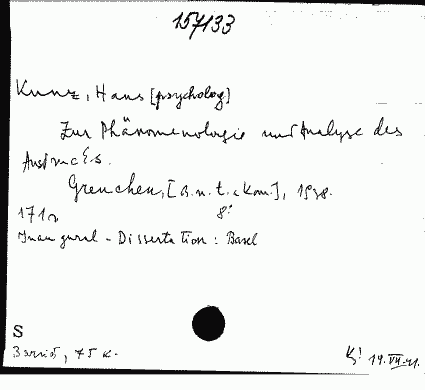 157133
Kunz, Hans [psycholog]
Zur Phänomenologie und Analyse des
Ausdrucks.
Grenchen, [a.n.t. c Kom.], 1938.
171 p 8°
Inaugural-Dissertation: Basel
S
75 K.
19.VII.41.